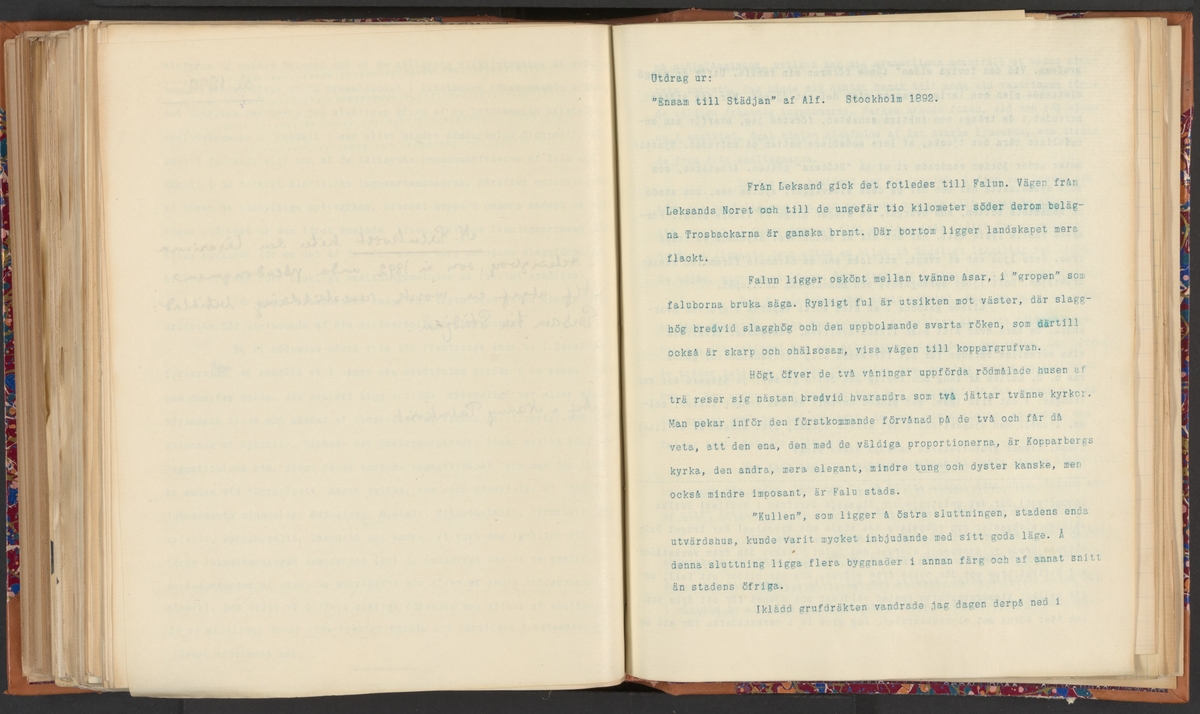 Utdrag ur:
"Ensam till Städjan" af Alf. Stockholm 1892.
Från Leksand gick det fotledes till Falun. Vägen från
Leksands Noret och till de ungefär tio kilometer söder derom beläg-
na Trosbackarna är ganska brant. Där bortom ligger landskapet mera
flackt.
Falun ligger oskönt mellan tvänne åsar, i "gropen" som
faluborna bruka säga. Rysligt ful är utsikten mot väster, där slagg-
hög bredvid slagghög och den uppbolmande svarta röken, som därtill
också är skarp och ohälsosam, visa vägen till koppargrufvan.
Högt öfver de två våningar uppförda rödmålade husen af
trä reser sig nästan bredvid hvarandra som två jättar tvänne kyrkor.
Man pekar inför den förstkommande förvånad på de två och får då
veta, att den ena, den med de väldiga proportionerna, är Kopparbergs
kyrka, den andra, mera elegant, mindre tung och dyster kanske, men
också mindre imposant, är Falu stads.
"Kullen", som ligger å östra sluttningen, stadens enda
utvärdshus, kunde varit mycket inbjudande med sitt goda läge. Å
denna sluttning ligga flera byggnader i annan färg och af annat snitt
än stadens öfriga.
Iklädd grufdräkten vandrade jag dagen derpå ned i